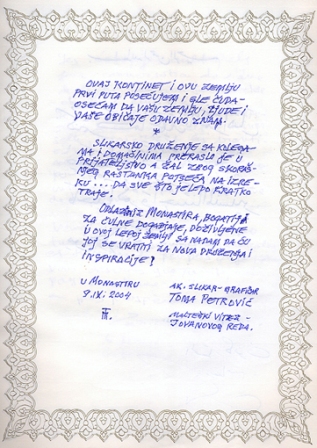 OVAJ KONTINET I OVU ZEMLJU
PRVI PUTA POSEĆUJEM I GLE ČUDA-
OSEĆAM DA VAŠU ZEMLJU, LJUDE I
VAŠE OBIČAJE ODAVNO ZNAM.
*
SLIKARSKO DRUŽENJE SA KOLEGA-
MA I DOMAĆINIMA PRERASLO JE U
PRIJATELJSTVO A ŽAL ZBOG SKORAŠ-
NJEG RASTANKA POTSEĆA NA IZRE-
KU.... DA SVE ŠTO JE LEPO KRATKO
TRAJE.
ODLAZIM IZ MONASTIRA, BOGATIJI
ZA ČULNE DOGAĐAJE, DOŽIVLJENE
U OVOJ LEPOJ ZEMLJI SA NADOM DA ĆU
JOJ SE VRATITI ZA NOVA DRUŽENJA I
INSPIRACIJE!
U MONASTIRU
9.IX.2004
AK. SLIKAR-GRAFIČAR
TOMA PETROVIĆ
MALTEŠKI VITEZ-
JOVANOVOG REDA.